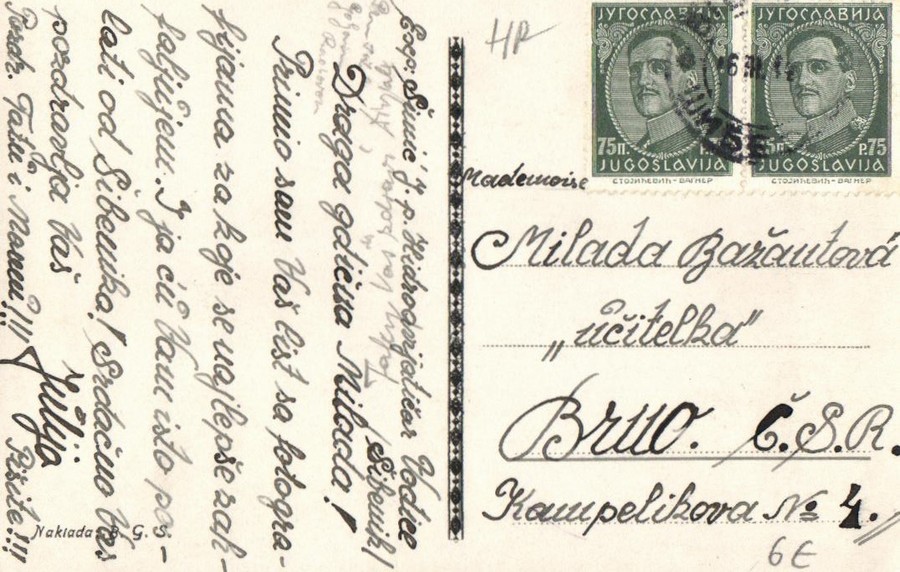 Eksp: Šimić J. p. Hidroavijatičar Vodice
/Šibenik/
Draga gdična Milada!
Primio sam Vaš list sa fotogra-
fijama za koje se najlepše zah-
faljujem. I ja ću Vam isto po-
slati od Šibenika! Srdačno Vas
pozdravlja Vaš
Pozdr. Tatu i Mamu!!!
Pišite!!!
Naklada: B. G. S.
HR
ЈУГОСЛАВИЈА
75 п.
JUGOSLAVIJA
СТОЈИЋЕВИЋ-ВАГНЕР
ЈУГОСЛАВИЈА
P. 75
JUGOSLAVIJA
СТОЈИЋЕВИЋ-ВАГНЕР
Mademoise
Milada Bažantová
„učitelka"
Brno. Č.S.R.
Kampelikova № 4.
6E